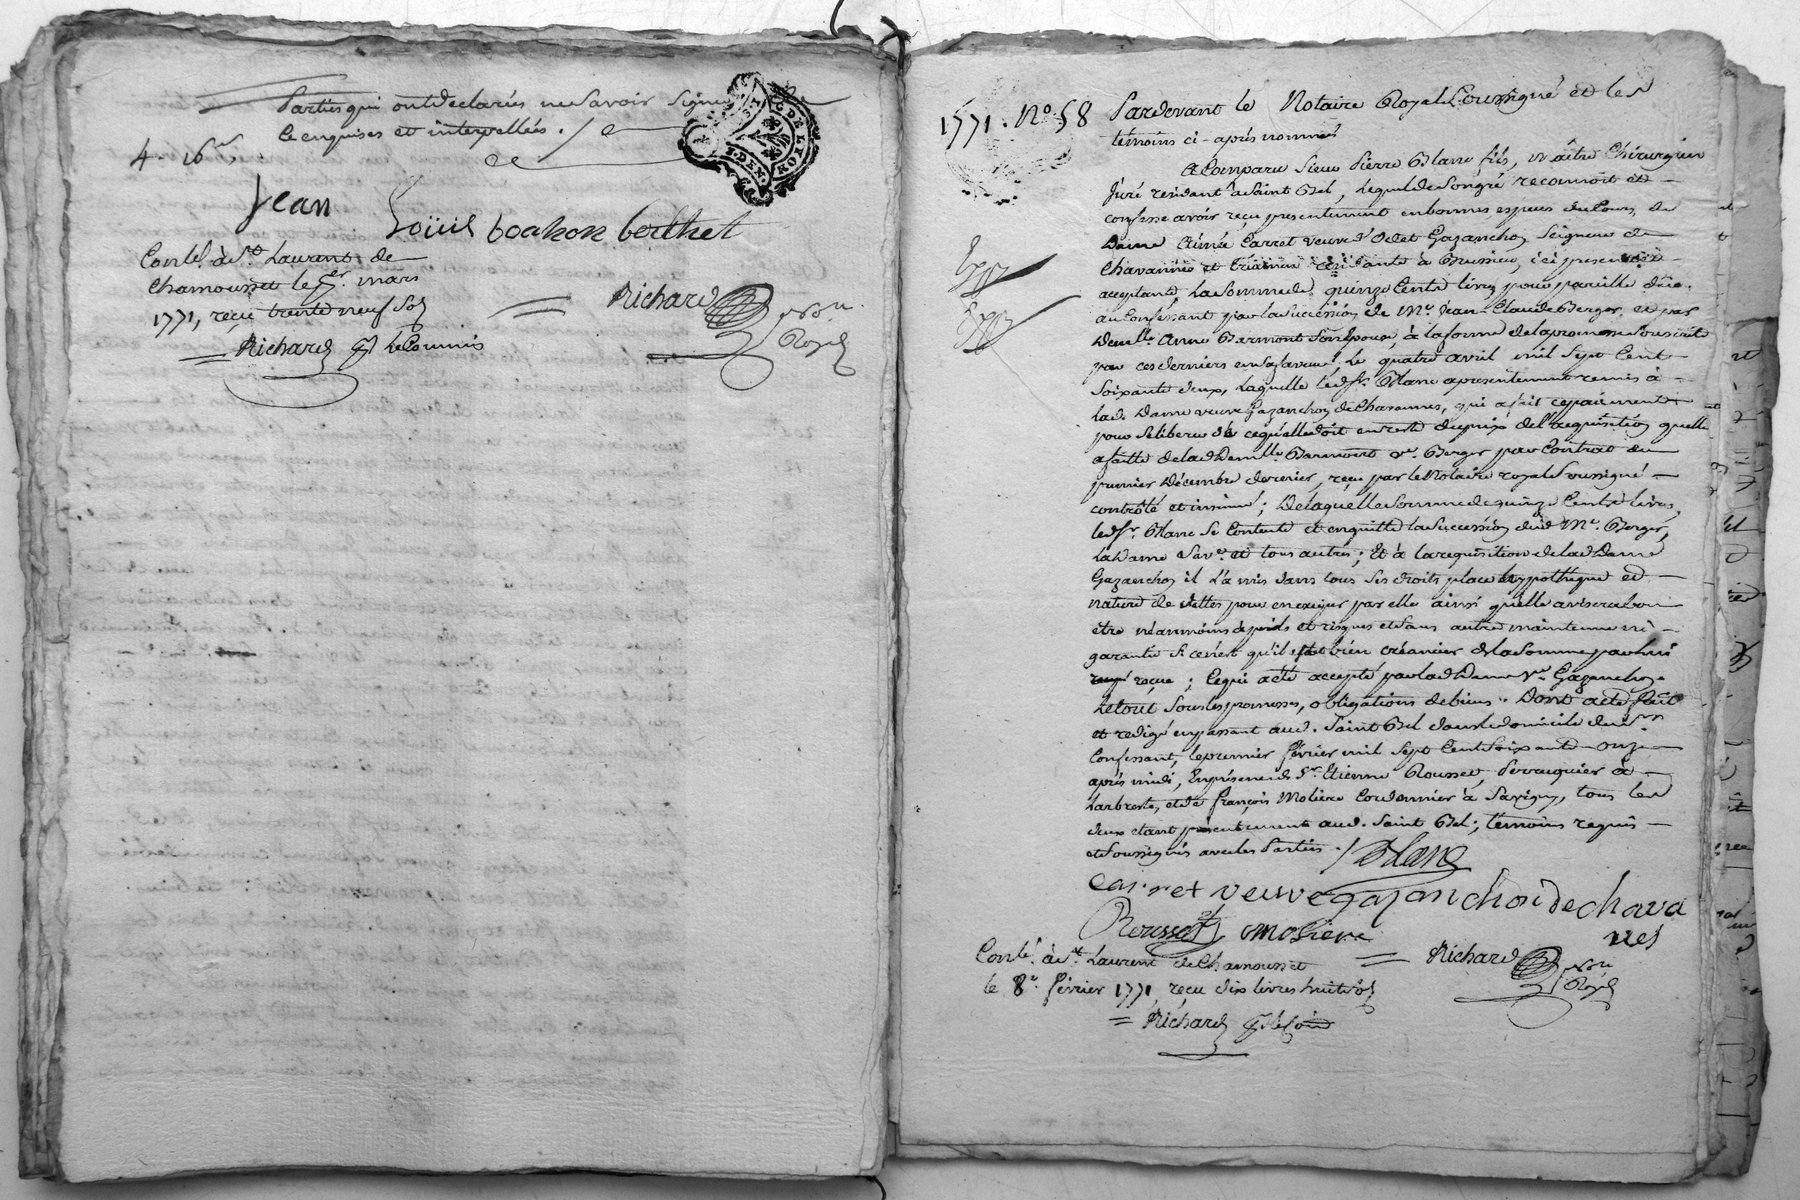 Parties qui ont déclarés ne savoir signer
de ce enquises et interpellées ./.
4 - 16
G. DE LYON
2. DEN.
Jean
Loüiis boahon berthet
Contlé. à St. Laurent de
Chamousset le 1er. mars
1771, reçu trente neuf sols
Richard
Richard Nore.
Royal
1771. No. 58
Pardevant le Notaire Royal Soussigné et les
témoins ci-après nommés
A Comparu Sieur Pierre Blanc fils, maître Chirurgien
Juré résidant à Saint Bel, lequel de son gré reconnoit et
confesse avoir reçu présentement en bonnes espèces du Cours, de
Dame Aimée Carret veuve d'Octet Gazanchoz Seigneur de
Chavannes et résidante à Brussieu, ici présente
acceptante, la Somme de quinze Cents livres pour pareille dûe
au Confessant par la Succéssion de Me. Jean Claude Berger, et par
Demlle. Anne Barmont Son Epouse, à la forme de la promesse souscrite
par ces derniers en sa faveur le quatre avril mil Sept Cent
Soixante deux, laquelle led. Sr. Blanc a présentement remis à
lad. Dame veuve Gazanchoz de Chavannes, qui a fait ce paiement
pour se liberer de ce qu'elle doit en reste du prix de l'acquisition qu'elle
a faitte de lad. Demlle. Barmont ve. Berger par Contrat du
premier Décembre dernier, reçu par le Notaire royal Soussigné
contrôlé et insinué ; De laquelle Somme de quinze Cents livres
led. Sr. Blanc se Contente et en quitte la Succéssion dud. Me. Berger,
la Dame Sa ve. et tous autres ; Et à la requisition de lad. Dame
Gazanchoz il l'a mis dans tous ses droits place hyppothéque et
nature de dettes pour en exiger par elle ainsi qu'elle avisera bon
être néanmoins à périls et risques et sans autre maintenue ni
garantie si ce n'est qu'il est bien créancier de la Somme par lui
reçue ; Ce qui a été accepté par lad. Dame ve. Gazanchoz
Le tout Sous les promesses, obligations de biens. Dont acte fait
et redigé en passant aud. Saint Bel dans le domicile dud. Sr.
Confessant, le premier février mil Sept Cent Soixante onze
après midi, En présence de Sr. Etienne Rousset, Perruquier à
Larbresle, et de François Molière Cordonnier à Savigny, tous les
deux étant présentement aud. Saint Bel ; témoins requis
et Soussignés avec les Parties ./.
Blanc
Carret veuve gazanchoz de chava
nes
Rousset
Moliere
Richard Nore.
Royal
Contlé. à St. Laurent de Chamousset
le 8e. février 1771, reçu dix livres huit sols
Richard